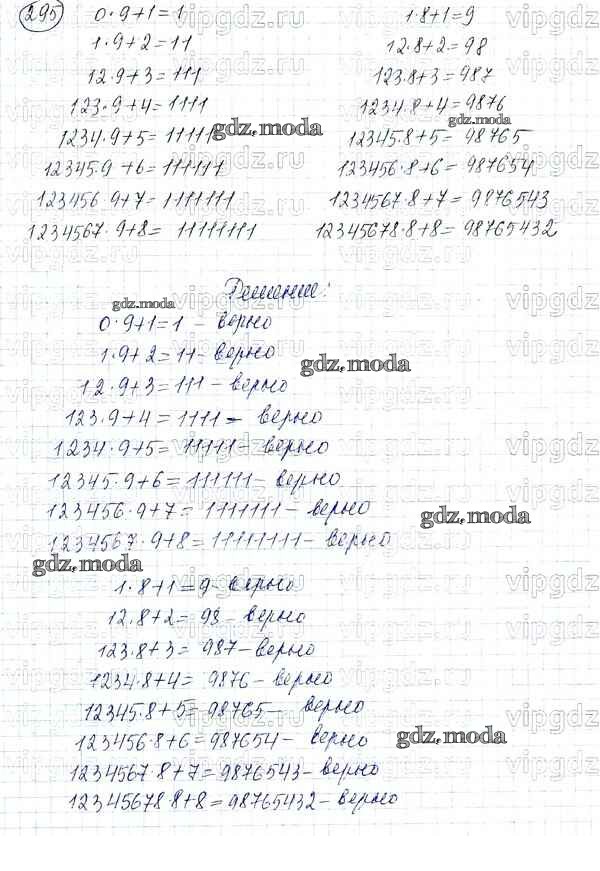 295
0·9+1=1
1·9+2=11
12·9+3=111
123·9+4=1111
1234·9+5=11111
12345·9+6=111111
123456·9+7=1111111
1234567·9+8=11111111
1·8+1=9
12·8+2=98
123·8+3=987
1234·8+4=9876
12345·8+5=98765
123456·8+6=987654
1234567·8+7=9876543
12345678·8+8=98765432
Решение:
0·9+1=1 - верно
1·9+2=11 - верно
12·9+3=111 - верно
123·9+4=1111 - верно
1234·9+5=11111 - верно
12345·9+6=111111 - верно
123456·9+7=1111111 - верно
1234567·9+8=11111111 - верно
1·8+1=9 - верно
12·8+2=98 - верно
123·8+3=987 - верно
1234·8+4=9876 - верно
12345·8+5=98765 - верно
123456·8+6=987654 - верно
1234567·8+7=9876543 - верно
12345678·8+8=98765432 - верно
gdz.moda
gdz.moda
gdz.moda
gdz.moda
gdz.moda
gdz.moda
gdz.moda
vipgdz.ru